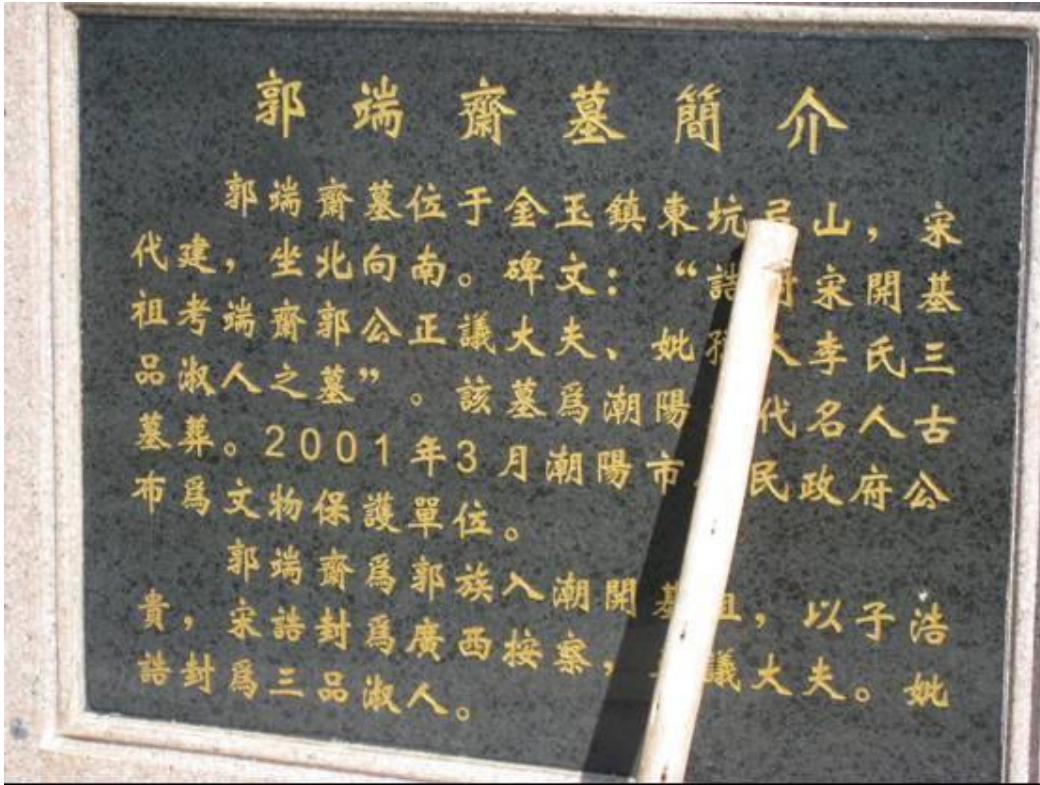 郭端齋墓簡介
郭端齋墓位于金玉鎮東坑山，宋
代建，坐北向南。碑文：“誥封宋開基
祖考端齋郭公正議大夫、妣孺人李氏三
品淑人之墓”。該墓爲潮陽代名人古
墓葬。2001年3月潮陽市民政府公
布爲文物保護單位。
郭端齋爲郭族入潮開基祖，以子浩
貴，宋誥封爲廣西按察，議大夫。妣
誥封爲三品淑人。